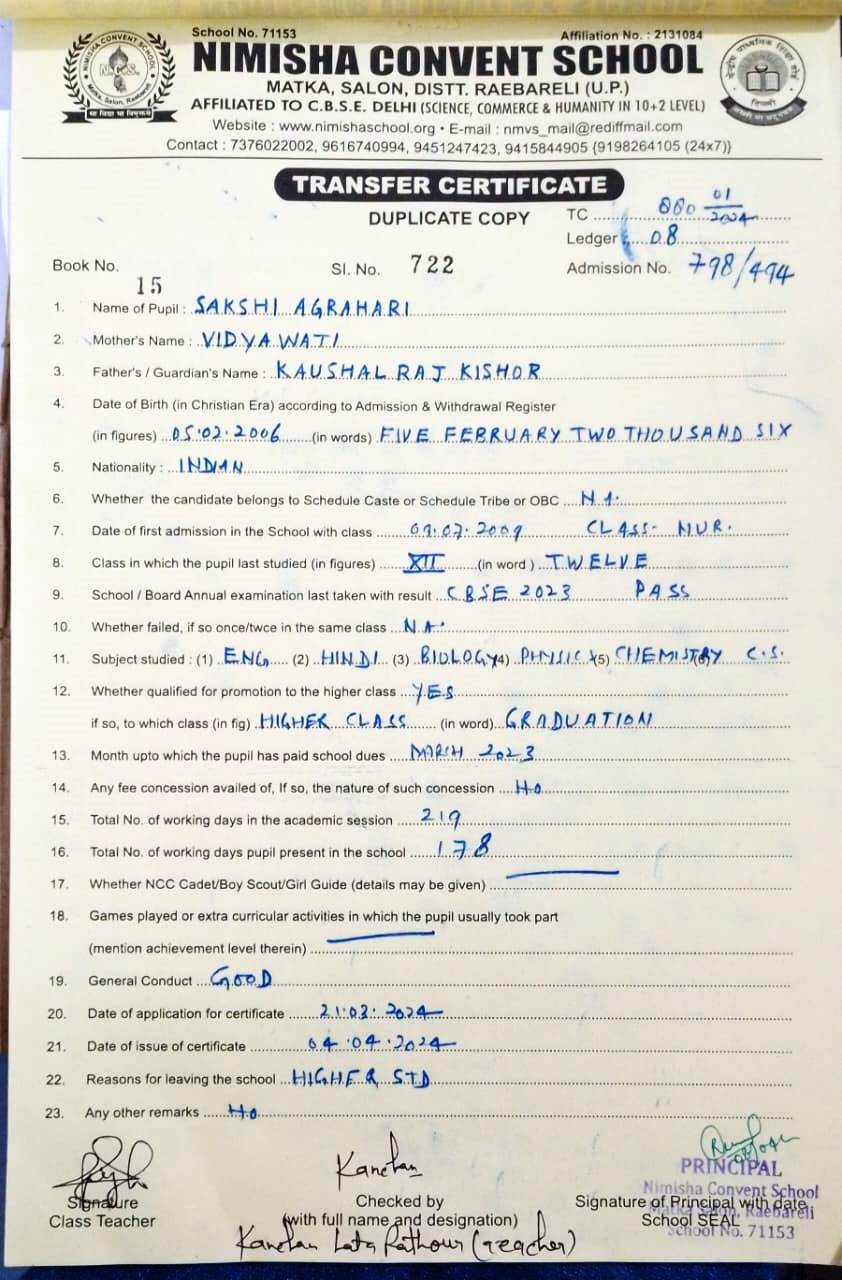 School No. 71153 Affiliation No. : 2131084
NIMISHA CONVENT SCHOOL
MATKA, SALON, DISTT. RAEBARELI (U.P.)
AFFILIATED TO C.B.S.E. DELHI (SCIENCE, COMMERCE & HUMANITY IN 10+2 LEVEL)
Website : www.nimishaschool.org • E-mail : nmvs_mail@rediffmail.com
Contact : 7376022002, 9616740994, 9451247423, 9415844905 (9198264105 (24x7))
TRANSFER CERTIFICATE
DUPLICATE COPY TC 01/2024
Ledger 08
Book No. 15 Sl. No. 722 Admission No. 798/494
1. Name of Pupil : SAKSHI AGRAHARI
2. Mother's Name : VIDYAWATI
3. Father's / Guardian's Name : KAUSHAL RAJ KISHOR
4. Date of Birth (in Christian Era) according to Admission & Withdrawal Register
(in figures) 05.02.2006 (in words) FIVE FEBRUARY TWO THOUSAND SIX
5. Nationality : INDIAN
6. Whether the candidate belongs to Schedule Caste or Schedule Tribe or OBC N.A.
7. Date of first admission in the School with class 09.07.2009 CLASS- NUR.
8. Class in which the pupil last studied (in figures) XII (in word ) TWELVE
9. School / Board Annual examination last taken with result CBSE 2023 PASS
10. Whether failed, if so once/twce in the same class N.A.
11. Subject studied : (1) ENG (2) HINDI (3) BIOLOGY (4) PHYSICS (5) CHEMISTRY (6) C.S.
12. Whether qualified for promotion to the higher class YES
if so, to which class (in fig) HIGHER CLASS (in word) GRADUATION
13. Month upto which the pupil has paid school dues MARCH 2023
14. Any fee concession availed of, If so, the nature of such concession No
15. Total No. of working days in the academic session 219
16. Total No. of working days pupil present in the school 178
17. Whether NCC Cadet/Boy Scout/Girl Guide (details may be given)
18. Games played or extra curricular activities in which the pupil usually took part
(mention achievement level therein)
19. General Conduct GOOD
20. Date of application for certificate 21.03.2024
21. Date of issue of certificate 04.04.2024
22. Reasons for leaving the school HIGHER STD
23. Any other remarks No
Kanchan
PRINCIPAL
Nimisha Convent School
Matka Salon, Raebareli
School No. 71153
Signature Checked by Signature of Principal with date
Class Teacher (with full name and designation) School SEAL
Kanchan Lata Rathour (Teacher)